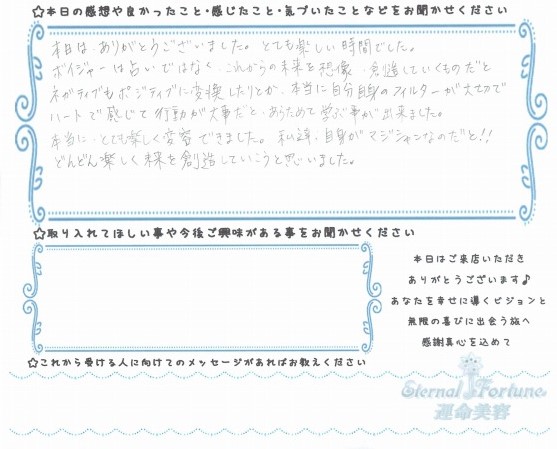 ☆本日の感想や良かったこと・感じたこと・気づいたことなどをお聞かせください
本日は、ありがとうございました。とても楽しい時間でした。
ボイジャーは占いではなく、これからの未来を想像、創造していくものだと
ネガティブもポジティブに変換したりとか、本当に自分自身のフィルターが大切で
ハートで感じて行動が大事だと、あらためて学ぶ事が出来ました。
本当に、とても楽しく変容できました。私達、自身がマジシャンなのだと!!
どんどん楽しく未来を創造していこうと思いました。
☆取り入れてほしい事や今後ご興味がある事をお聞かせください
本日はご来店いただき
ありがとうございます♪
あなたを幸せに導くビジョンと
無限の喜びに出会う旅へ
感謝真心を込めて
☆これから受ける人に向けてのメッセージがあればお教えください
Eternal Fortune
運命美容